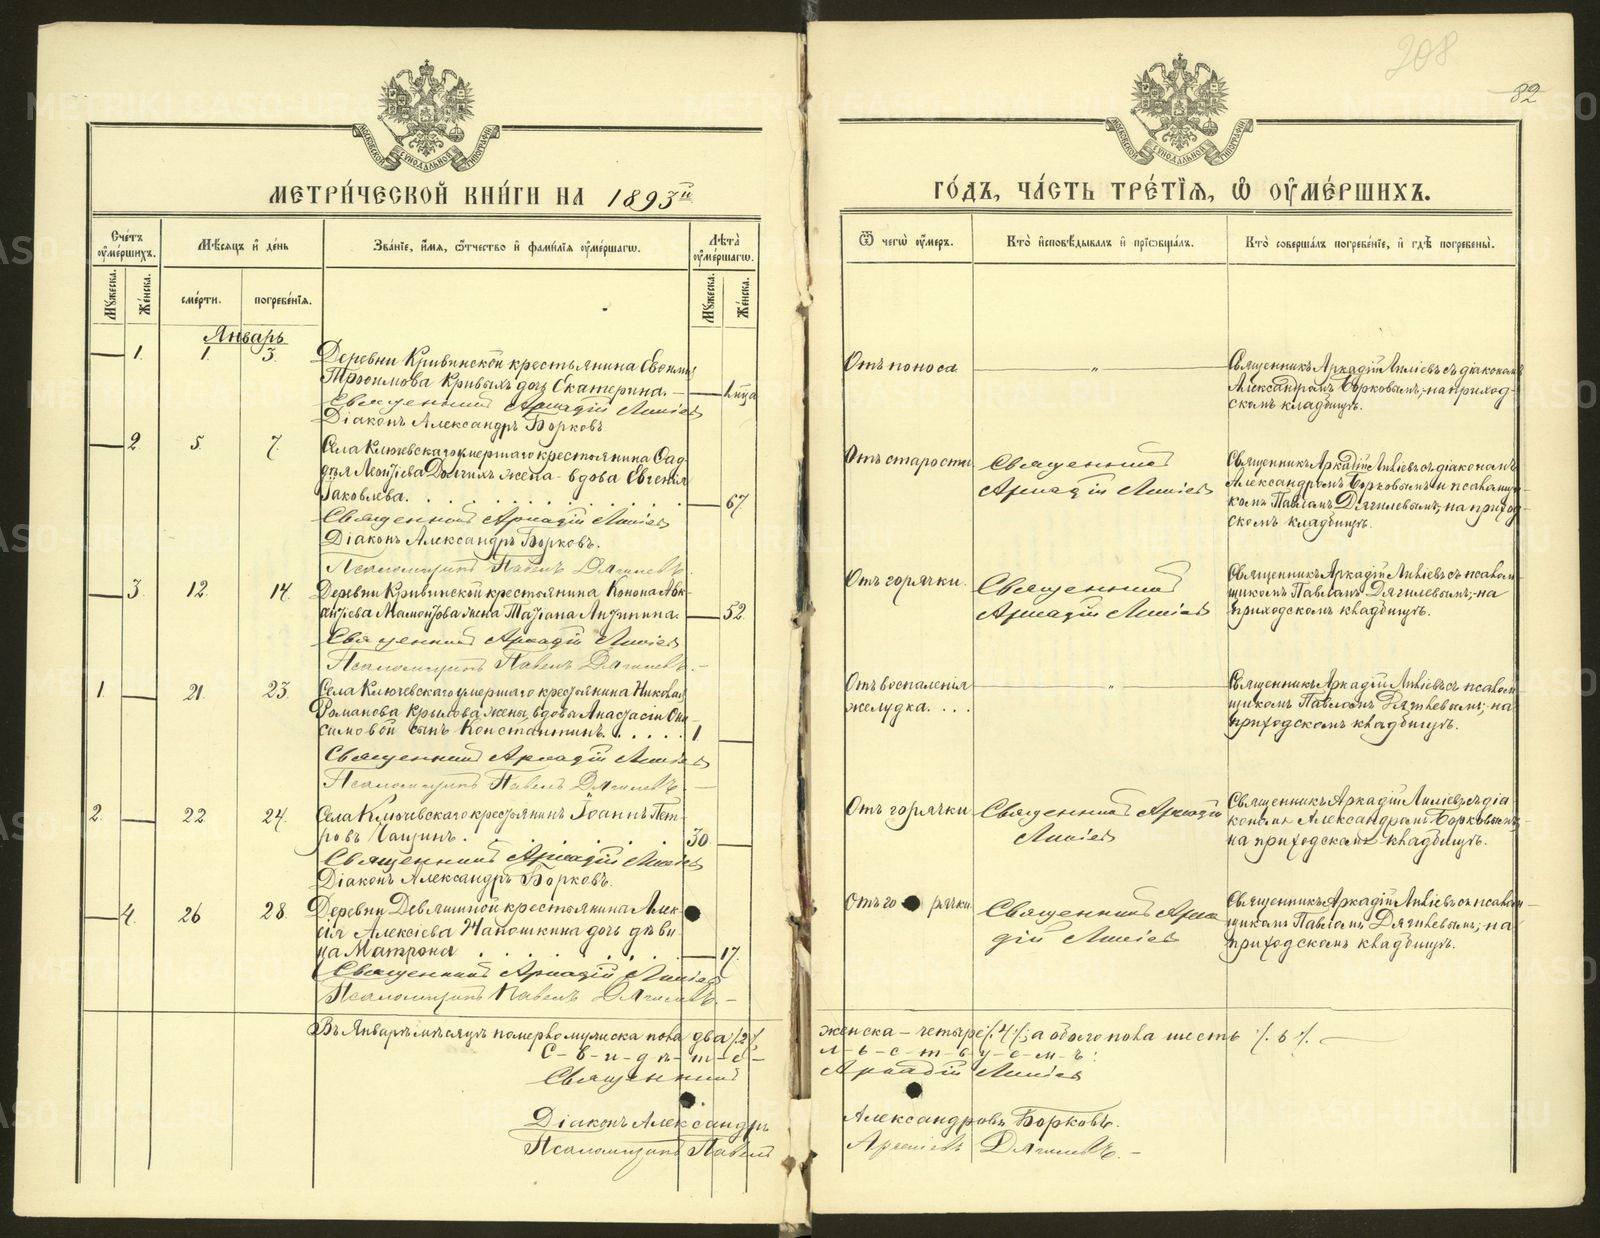 208
82
МЕТРИ́ЧЕСКОЙ КНИ́ГИ НА 1893й
ГО́ДЪ, ЧА́СТЬ ТРЕ́ТІѦ, Ѡ ОУМЕ́РШИХЪ.
Сче́тъ оуме́ршихъ.
Мужеска.
Же́нска.
Мѣсяцъ и де́нь
сме́рти.
погребе́нія.
Зва́ніе, и́мя, ѻ́тчество и фами́лія оуме́ршагѡ.
Лѣ́та оуме́ршагѡ.
Мужеска.
Же́нска.
Ѿ чегѡ̀ оу́меръ.
Кто̀ исповѣ́дывалъ и прїѡбща́лъ.
Кто̀ соверша́лъ погребе́ніе, и гдѣ̀ погребены̀.
Январь
1. 1. 3.
Деревни Кривинской крестьянина Евѳимія
Трофимова Кривыхъ дочь Екатерина.—
Священникъ Аркадій Ляпіевъ
Діаконъ Александръ Борковъ
Отъ поноса
Священникъ Аркадій съ діакономъ
Александромъ Борковымъ, на приход-
скомъ кладбищѣ.
2. 5. 7.
Села Ключевскаго умершаго крестьянина Ѳад-
дея Леонтіева Долгихъ жена - вдова Евгенія
Іаковлева.
67
Священникъ Аркадій
Діаконъ Александръ Борковъ.
Псаломщикъ Павелъ Дягилевъ
Отъ старости
Священникъ
Аркадій
Священникъ Аркадій съ діакономъ
Александромъ Борковымъ и псаломщи-
комъ Павломъ Дягилевымъ, на приход-
скомъ кладбищѣ.
3. 12. 14.
Деревни Кривинской крестьянина Конона Авк-
сентіева Мамонтова жена Татіана Антипина.
52.
Священникъ Аркадій
Псаломщикъ Павелъ Дягилевъ.—
Отъ горячки.
Священникъ
Аркадій
Священникъ Аркадій съ псалом-
щикомъ Павломъ Дягилевымъ, на
приходскомъ кладбищѣ.
1. 21. 23.
Села Ключевскаго умершаго крестьянина Николая
Романова Крылова жены, вдовы Анастасіи Они-
симовой сынъ Константинъ.
1
Священникъ Аркадій
Псаломщикъ Павелъ Дягилевъ.—
Отъ воспаленія
желудка. . . .
Священникъ Аркадій съ псалом-
щикомъ Павломъ Дягилевымъ, на
приходскомъ кладбищѣ.
2. 22. 24.
Села Ключевскаго крестьянинъ Іоаннъ Пет-
ровъ Чащинъ.
30.
Священникъ Аркадій
Діаконъ Александръ Борковъ.
Отъ горячки
Священникъ Аркадій
Священникъ Аркадій съ діа-
кономъ Александромъ Борковымъ,
на приходскомъ кладбищѣ.
4. 26 28.
Деревни Девяшиной крестьянина Алек-
сія Алексіева дочь дѣви-
ца Матрона
17.
Священникъ Аркадій
Псаломщикъ Павелъ Дягилевъ.—
Отъ горячки
Священникъ Арка-
дій
Священникъ Аркадій съ псалом-
щикомъ Павломъ Дягилевымъ, на
приходскомъ кладбищѣ.
Въ Январѣ мѣсяцѣ померло мужеска пола два /.2./, женска — четыре /.4./, а обоего пола шесть /.6./.
С-в-и-д-ѣ-т-е-л-ь-с-т-в-у-е-м-ъ:
Священникъ Аркадій
Діаконъ Александръ Александровъ Борковъ.
Псаломщикъ Павелъ Дягилевъ.—